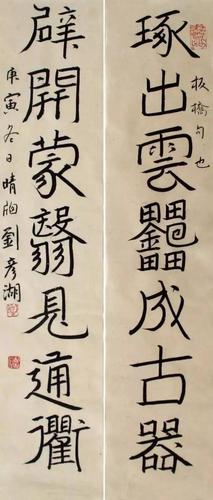 板橋句也
琢出雲雷成古器
辟開蒙翳見通衢
庚寅冬日晴牕劉彥湖